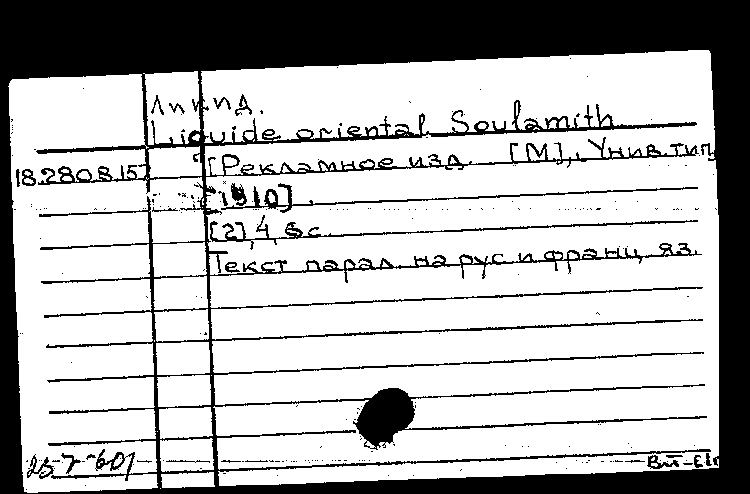 Ликид.
Liquide oriental Soulamith
18.280.8.157 [Рекламное изд. [М], Унив. тип,
[1910].
[2], 4, с.
Текст парал. на рус и франц. яз.
25-7-601